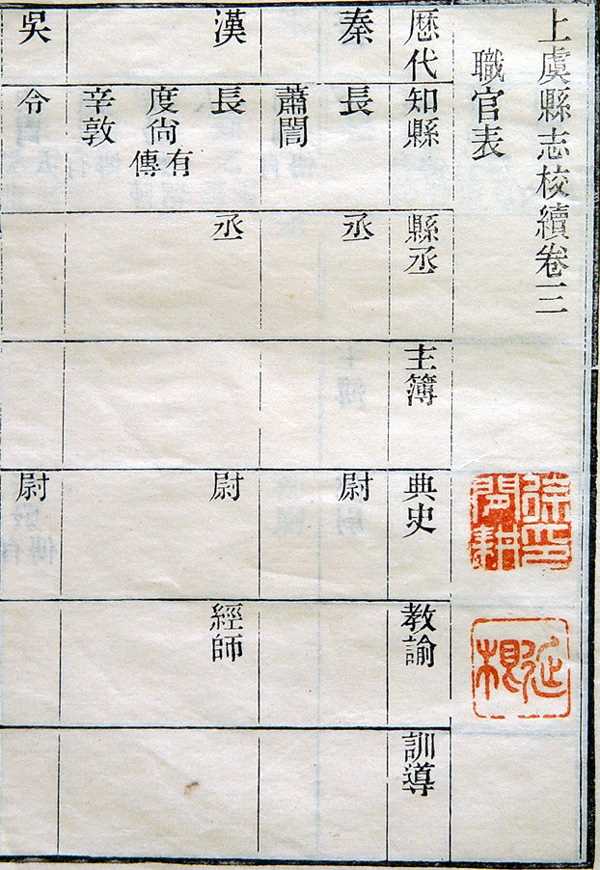 上虞縣志校續卷三
職官表
厯代 知縣 縣丞 主簿 典史 教諭 訓導
秦 長 丞 尉
蕭
漢 長 丞 尉 經師
度尙 有傳
辛敦
吳 令 尉